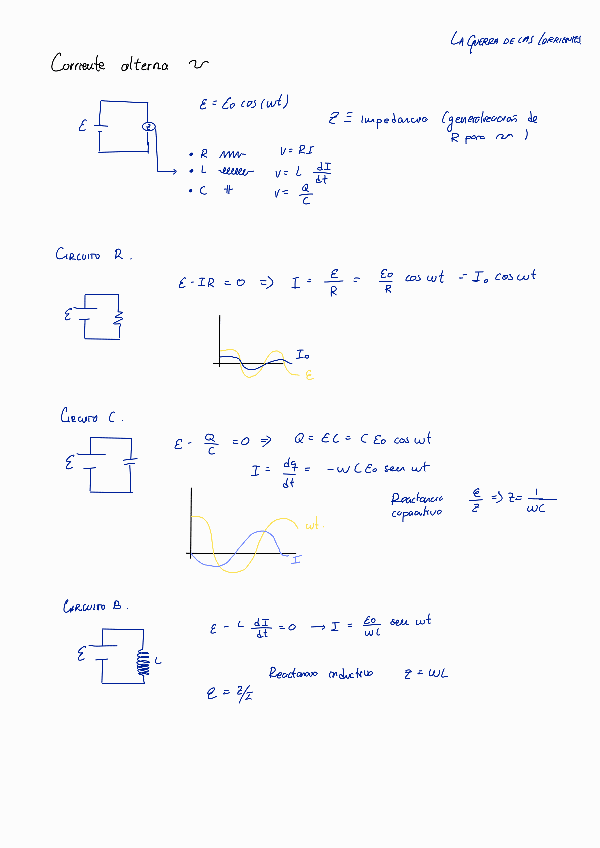 LA GUERRA DE LAS CORRIENTES
Corriente alterna ~
ε = ε₀ cos(wt)
ε
Z
Z ≡ Impedancia (generalización de
R para ~ )
• R V = RI
• L V = L dI/dt
• C V = Q/C
CIRCUITO R.
ε - IR = 0 => I = ε/R = ε₀/R cos wt = I₀ cos wt
ε
I₀
ε
CIRCUITO C.
ε - Q/C = 0 => Q = εC = C ε₀ cos wt
ε
I = dq/dt = -wCε₀ sen wt
Reactancia
capacitiva
ε/Z => Z = 1/wC
wt.
I
CIRCUITO B.
ε - L dI/dt = 0 → I = ε₀/wL sen wt
ε
L
Reactancia inductiva Z = wL
ε = Z/I